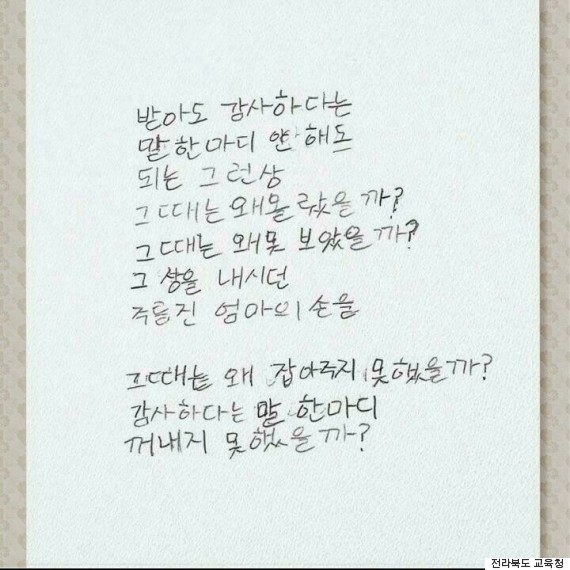 받아도 감사하다는
말 한마디 안 해도
되는 그런상
그때는 왜몰 랐을 까?
그때는 왜못 보았을까?
그 상을 내시던
주름진 엄마의 손을
그때는 왜 잡아주지 못했을까?
감사하다는 말 한마디
꺼내지 못했을까?
전라북도 교육청